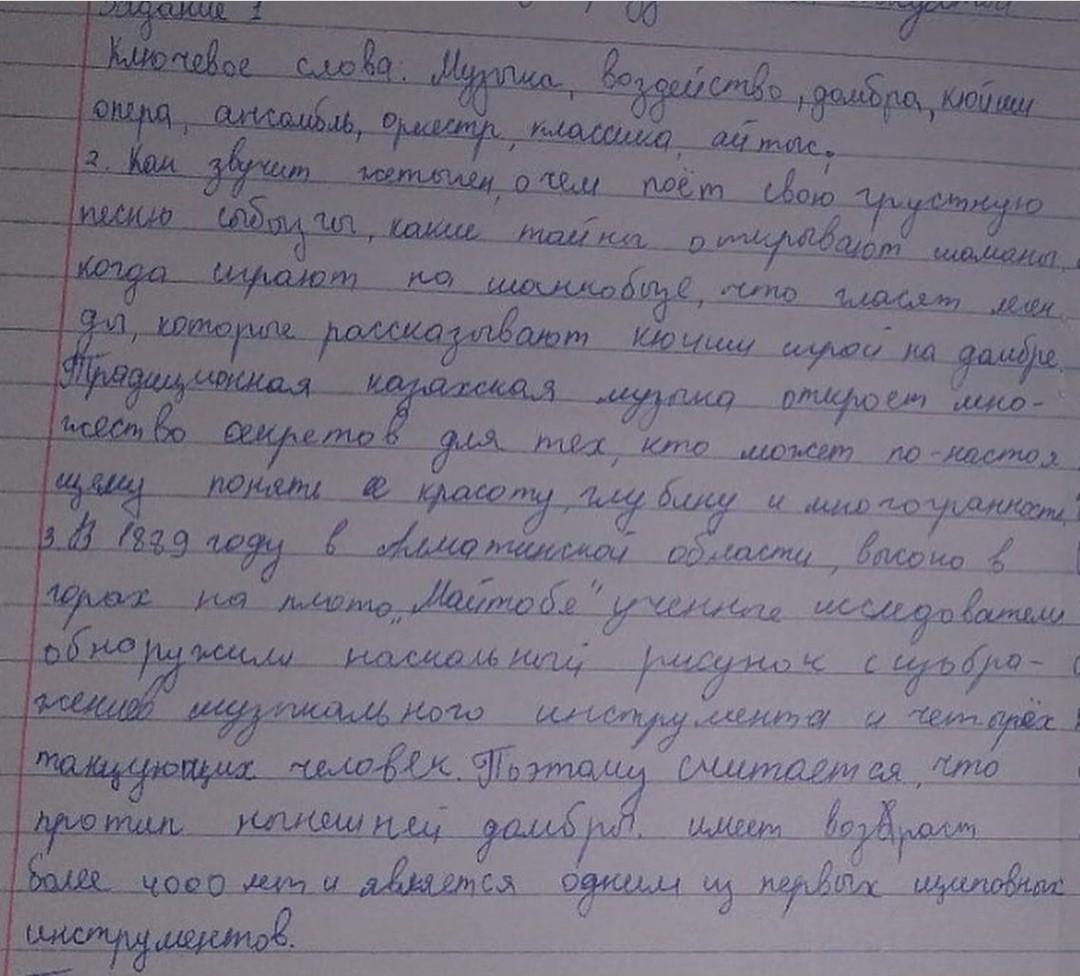 Задание 1
Ключевое слова: Музыка, воздейство, домбра, кюйши
опера, ансамбль, оркестр, классика, айтыс.
2. Как звучит жетыген, о чем поёт свою грустную
песню сыбызгы, какие тайны открывают шаманы,
когда играют на шанкобызе, что гласят леген
ды, которые рассказывают кюйши игрой на домбре.
Традиционная казахская музыка откроет мно-
жество секретов для тех, кто может по-настоя
щему понять ее красоту, глубину и многогранность
3. В 1889 году в Алматинской области, высоко в
горах на плото „Майтобе" ученные исследователи
обнаружили наскальный рисунок с изобра-
жением музыкального инструмента и четырёх
танцующих человек. Поэтому считается, что
протип нынешней домбры имеет возраст
более 4000 лет и является одним из первых щиповных
инструментов.